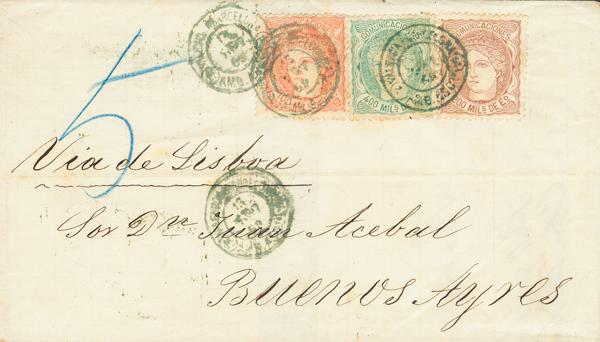 COMUNICACIONES COMUNICACIONES COMUNICACIONES
100 MILS DE E 400 MILS DE 200 MILS DE EO
5
Via de Lisboa
Sor Dn Juan Acebal
Buenos Ayres